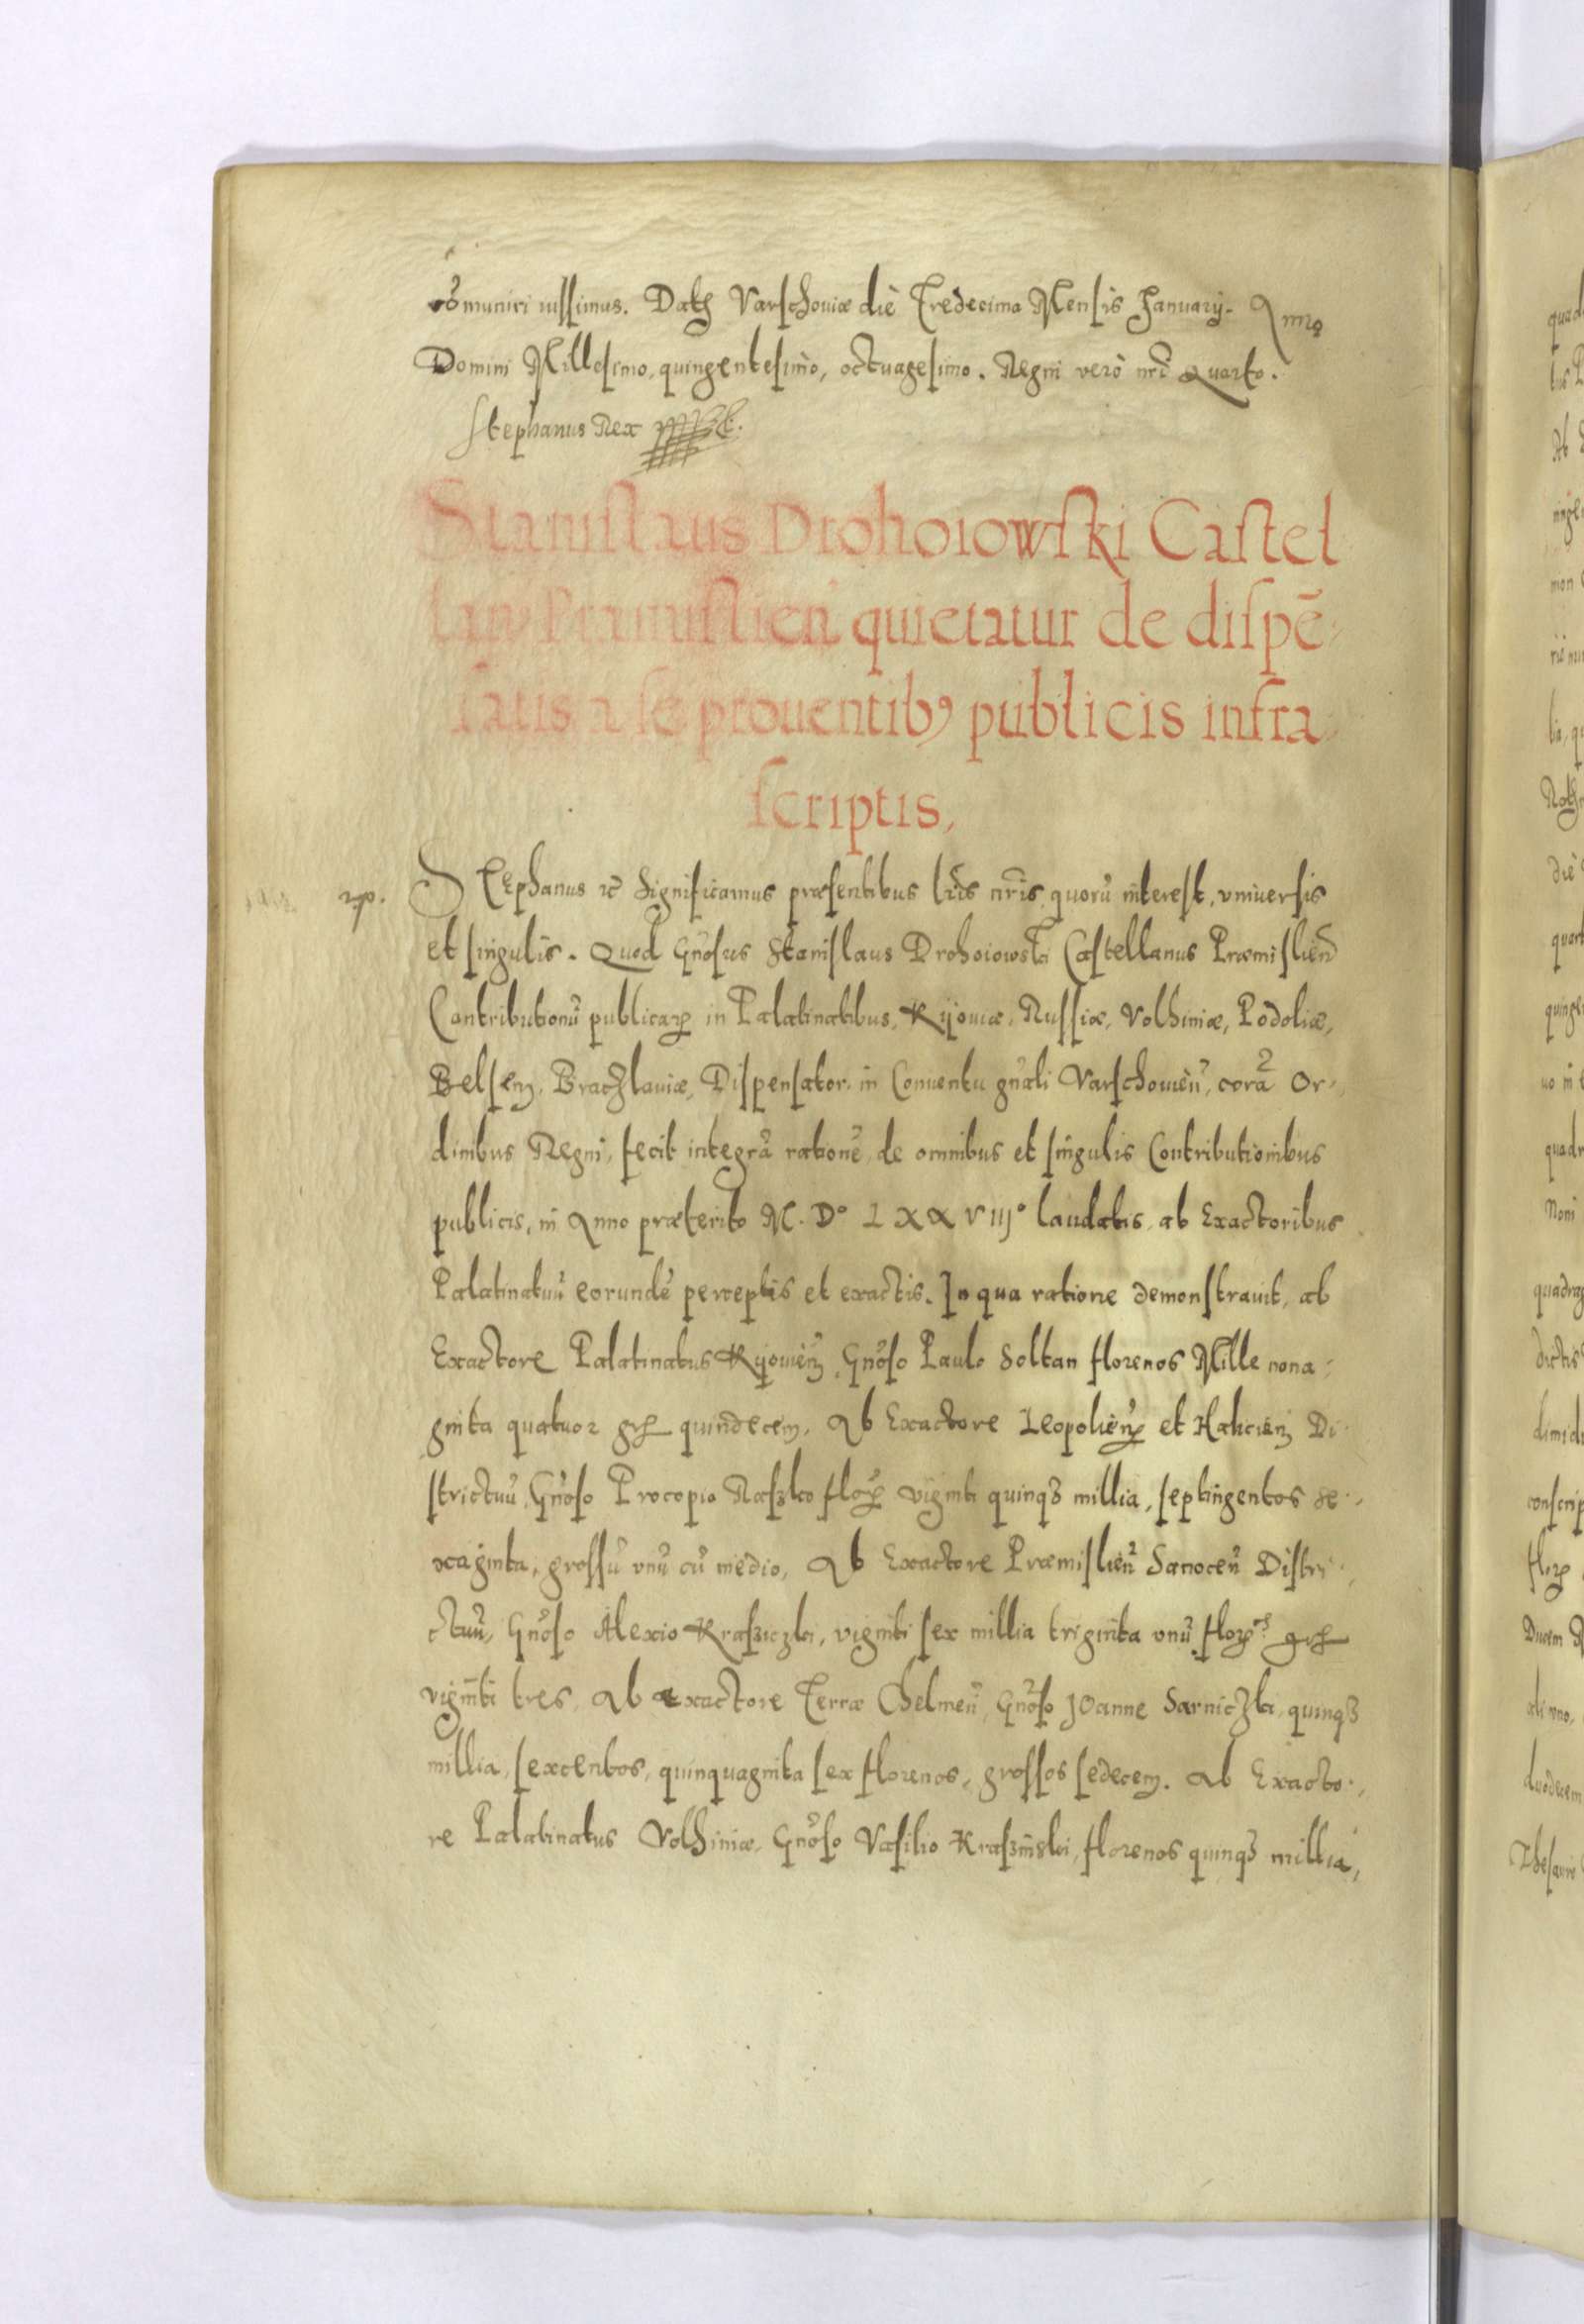 cõmuniri iussimus. Datꝭ Varschoviæ die Tredecima Mensis January. Anno
Domini Millesimo, quingentesimo, octuagesimo. Regni verò nrĩ Quarto.
Stephanus Rex
Stanislaus Drohoiowski Castel
lanꝰ Præmislien̄ quietatur de dispē
satis a se prouentibꝰ publicis infra
scriptis,
Stephanus ꝛc̃ Significamus præsentibus lrĩs nrĩs quorũ interest, vniuersis
et singulis. Quod Gñosus Stanislaus Drohoiowski Castellanus Præmislieñ
Contributionũ publicarꝝ in Palatinatibus, Kyouiæ, Russiæ, Volhiniæ, Podoliæ,
Belsen̄, Braczlauiæ, Dispensator in Conuentu gñali Varschouieñ, corã Or
dinibus Regni, fecit integrã rationẽ de omnibus et singulis Contributionibus
publicis, in Anno præterito M. D° LXXVIII° laudatis, ab Exactoribus
Palatinatuũ eorundẽ perceptis et exactis. In qua ratione demonstrauit, ab
Exactore Palatinatus Kyouieñ, Gñoso Paulo Soltan florenos Mille nona
ginta quatuor grꝭ quindecem. Ab Exactore Leopolieñ et Halicieñ Di
strictuũ, Gñoso Procopio florꝝ viginti quinqꝫ millia, septingentos se
xaginta, grossũ vnũ cũ medio, Ab Exactore Præmislieñ Sanoceñ Distri
ctuũ, Gñoso Alexio viginti sex millia triginta vnũ florꝝ grꝭ
viginti tres, Ab exactore Terræ Chelmeñ, Gñoso Joanne Sarniczki, quinqꝫ
millia, sexcentos, quinquaginta sex florenos, grossos sedecem. Ab Exacto
re Palatinatus Volhiniæ, Gñoso Vasilio Krasinski, florenos quinqꝫ millia,